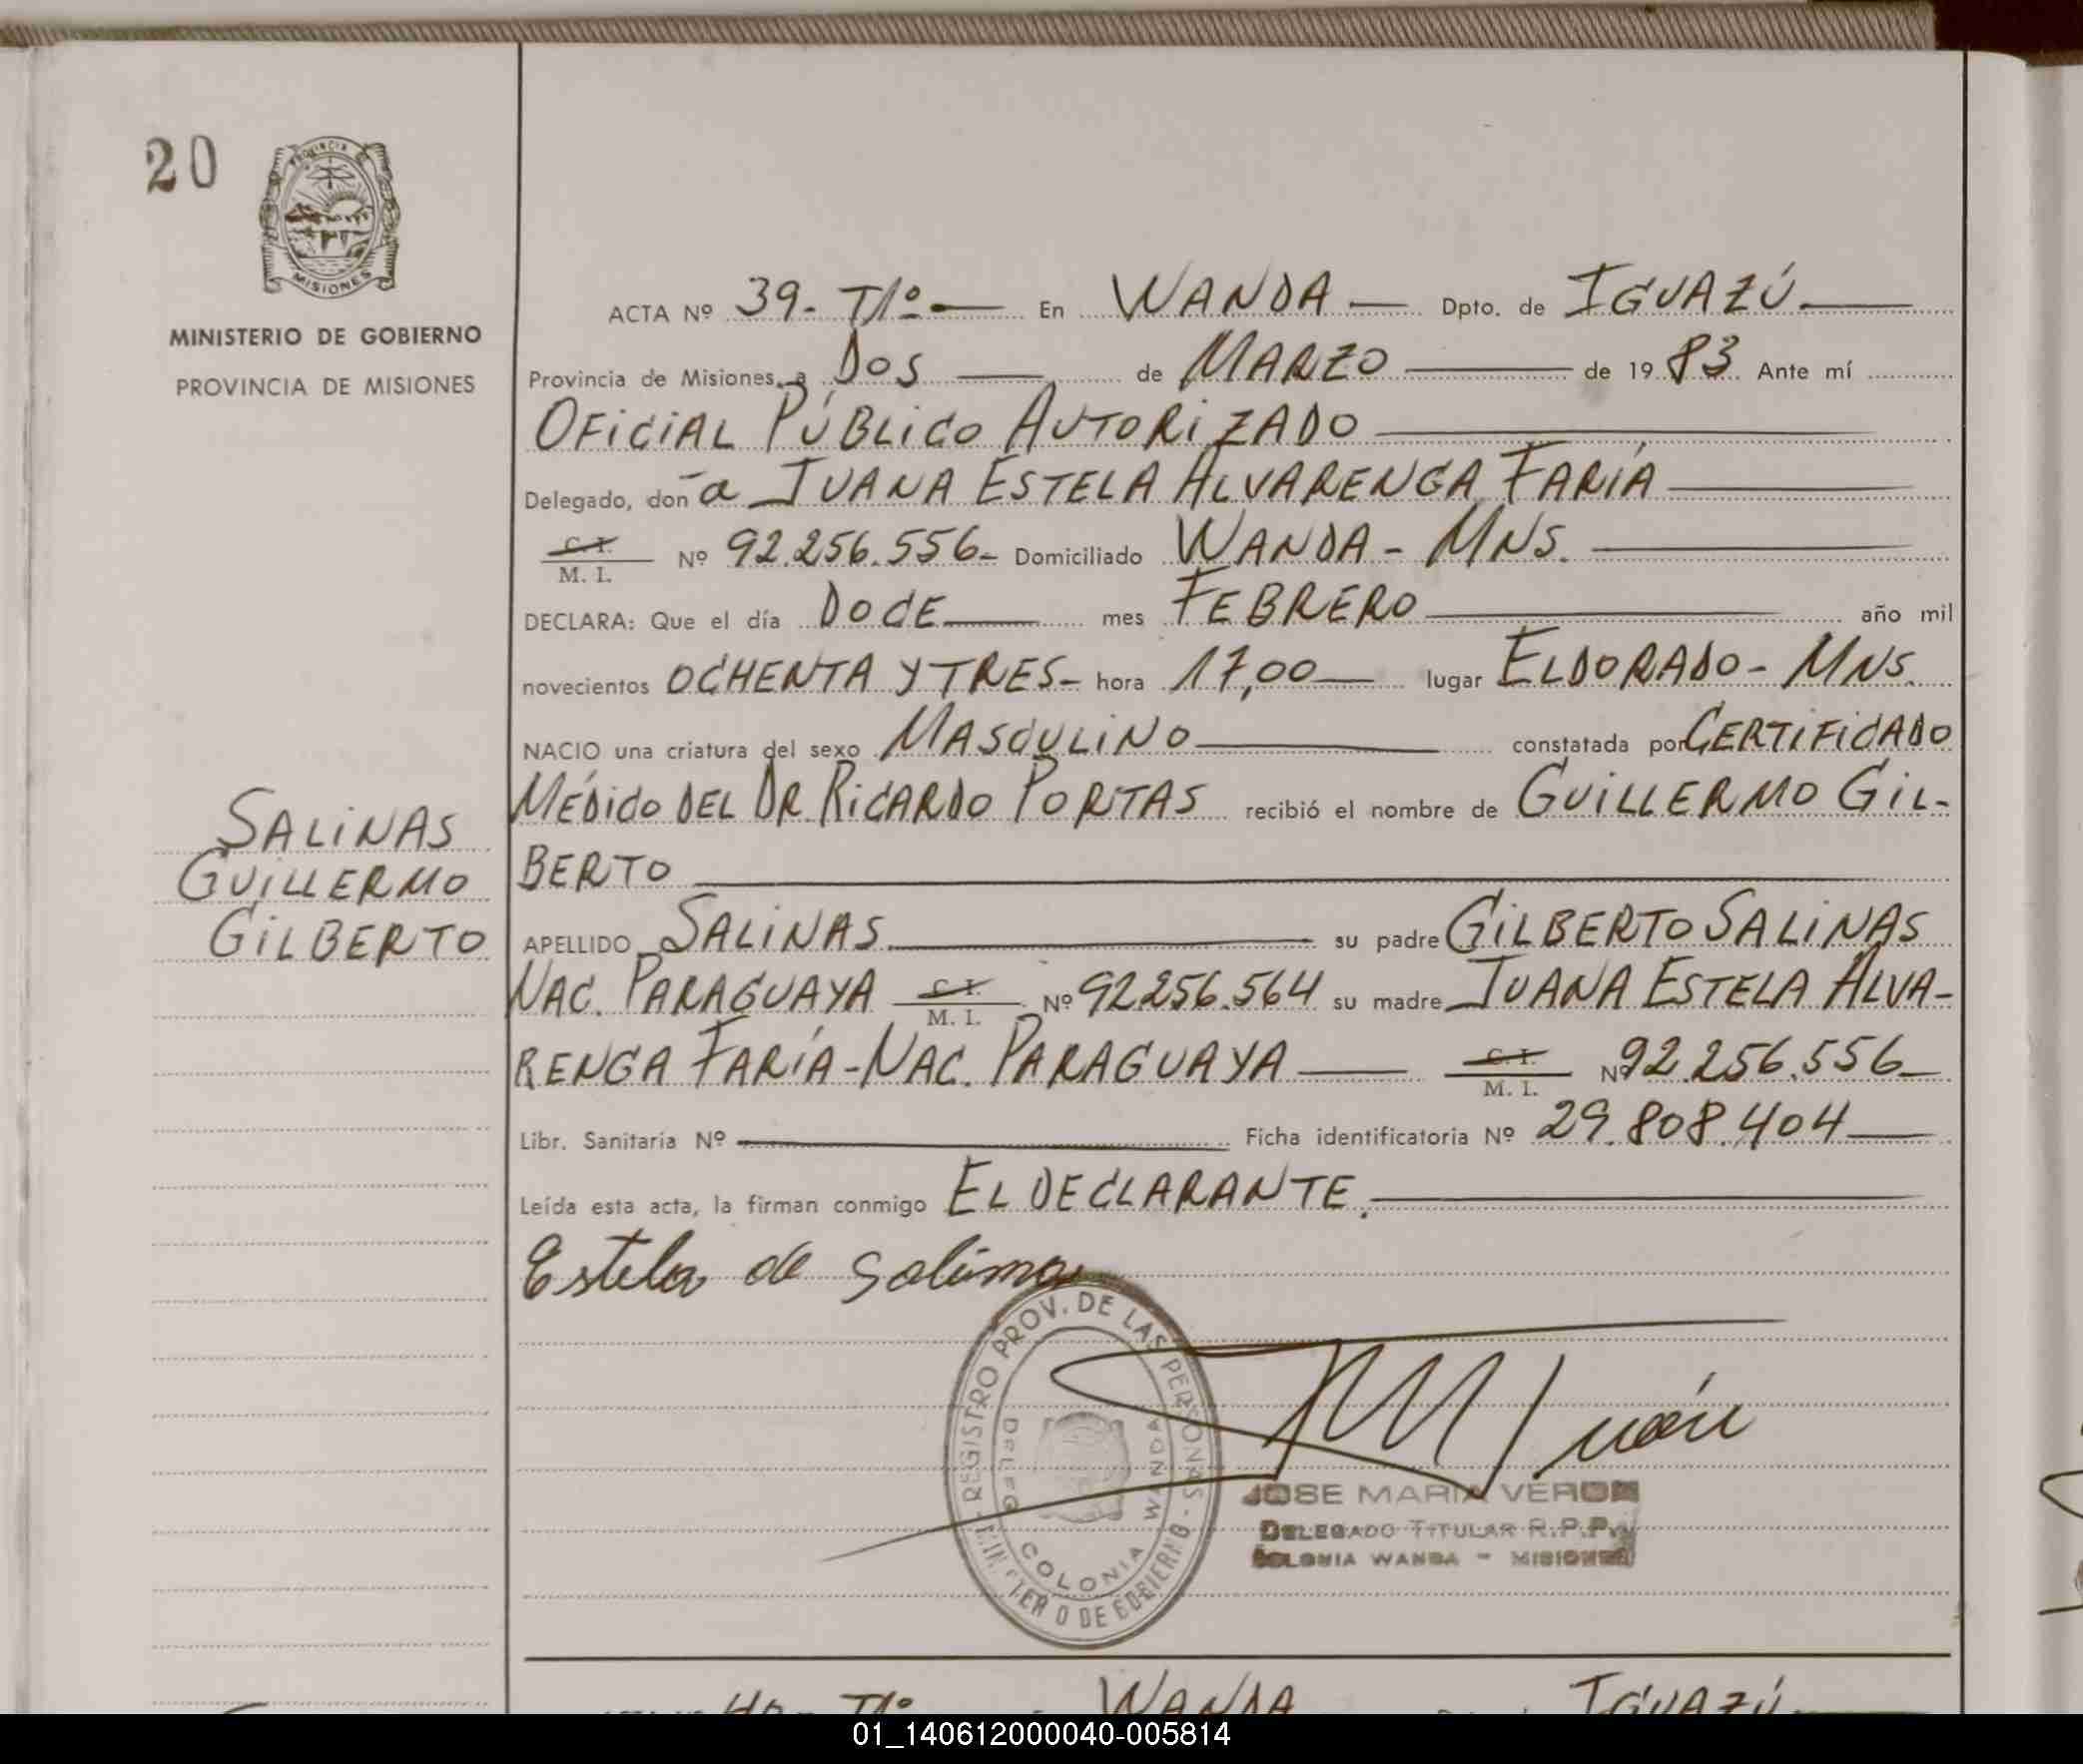 20
PROVINCIA DE
MISIONES
MINISTERIO DE GOBIERNO
PROVINCIA DE MISIONES
ACTA Nº 39- T1º- En WANDA Dpto. de IGUAZÚ
Provincia de Misiones, a DOS de MARZO de 1983 Ante mí
OFICIAL PÚBLICO AUTORIZADO
Delegado, don a JUANA ESTELA ALVARENGA FARÍA
C. I. M. I. Nº 92.256.556- Domiciliado WANDA - MNS.
DECLARA: Que el día DOCE mes FEBRERO año mil
novecientos OCHENTA Y TRES- hora 17,00 lugar ELDORADO - MNS.
NACIO una criatura del sexo MASCULINO constatada por CERTIFICADO
MÉDICO DEL DR. RICARDO PORTAS recibió el nombre de GUILLERMO GIL-
BERTO
SALINAS
GUILLERMO
GILBERTO
APELLIDO SALINAS su padre GILBERTO SALINAS
NAC. PARAGUAYA C. I. M. I. Nº 92.256.564 su madre JUANA ESTELA ALVA-
RENGA FARÍA - NAC. PARAGUAYA C. I. M. I. Nº 92.256.556
Libr. Sanitaria Nº Ficha identificatoria Nº 29.808.404
Leída esta acta, la firman conmigo EL DECLARANTE.
Estela de Salinas
REGISTRO PROV. DE LAS PERSONAS - DE GOBIERNO
COLONIA WANDA
JOSE MARIA VERON
DELEGADO TITULAR R.P.P.
COLONIA WANDA - MISIONES
40 - T1º WANDA IGUAZÚ
01_140612000040-005814